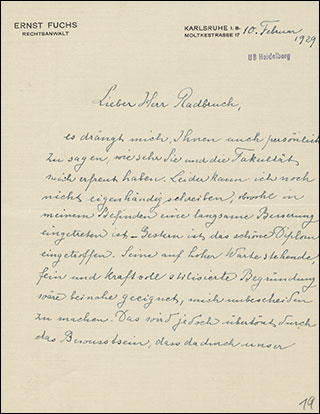 ERNST FUCHS
RECHTSANWALT
KARLSRUHE I. B. 10. Februar
MOLTKESTRASSE 17 1929
UB Heidelberg
Lieber Herr Radbruch,
es drängt mich, Ihnen auch persönlich
zu sagen, wie sehr Sie und die Fakultät
mich erfreut haben. Leider kann ich noch
nicht eigenhändig schreiben, obwohl in
meinem Befinden eine langsame Besserung
eingetreten ist. – Gestern ist das schöne Diplom
eingetroffen. Seine auf hoher Warte stehende,
fein und kraftvoll stilisierte Begründung
wäre beinahe geeignet, mich unbescheiden
zu machen. Das wird jedoch übertönt durch
das Bewusstsein, dass dadurch unser
19